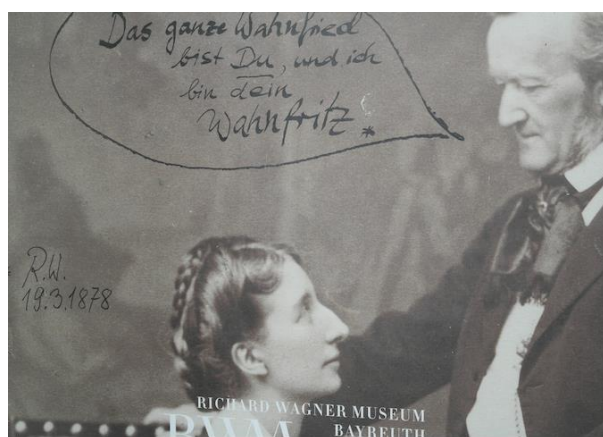 Das ganze Wahnfried
bist Du, und ich
bin dein
Wahnfritz.*
R.W.
19.3.1878
RICHARD WAGNER MUSEUM
RWM
BAYREUTH